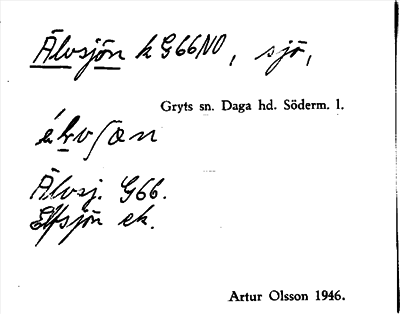 Älvsjön k G66NO, sjö,
Gryts sn. Daga hd. Söderm. l.
Älvsj. G66.
Elfsjön ek.
Artur Olsson 1946.